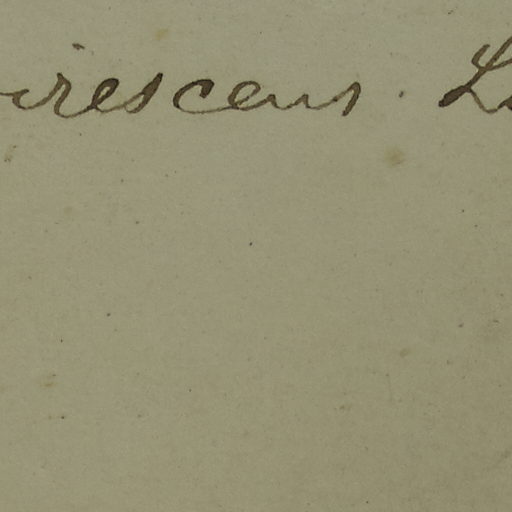 virescens. L